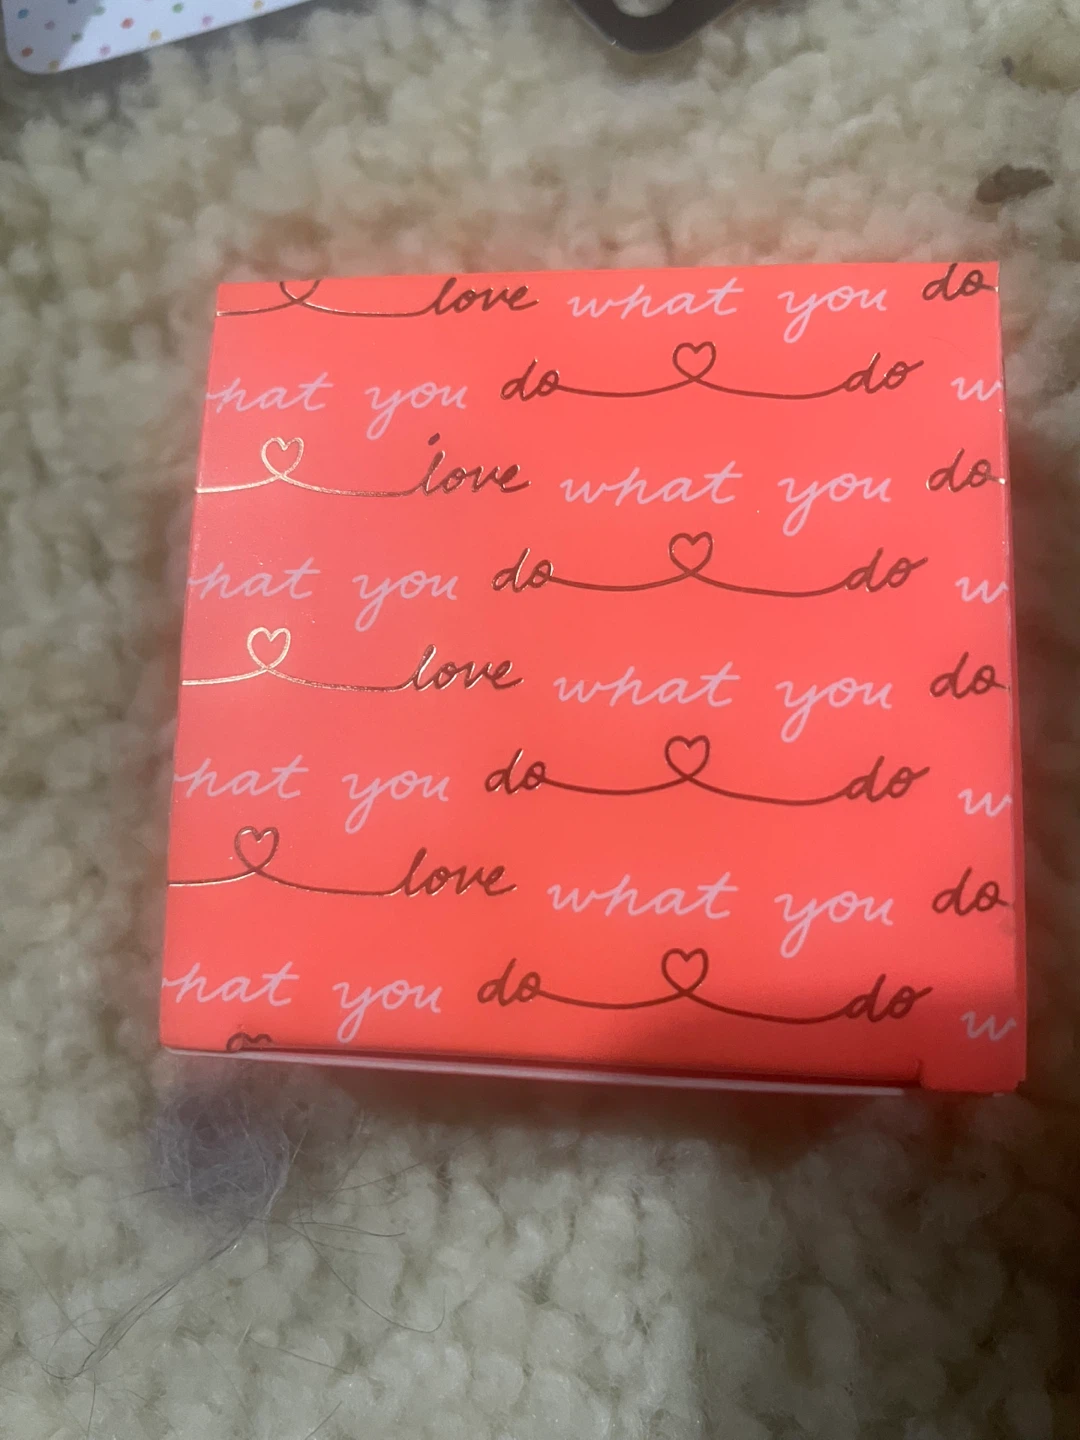 love what you do
hat you do do w
love what you do
hat you do do w
love what you do
hat you do do w
love what you do
hat you do do w